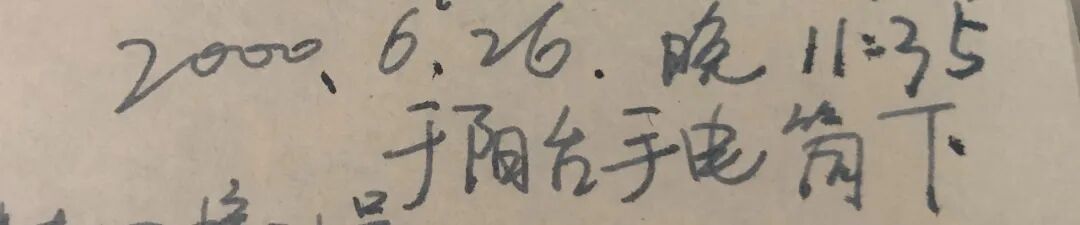 2000、6.26. 晚 11:35
于阳台手电筒下.